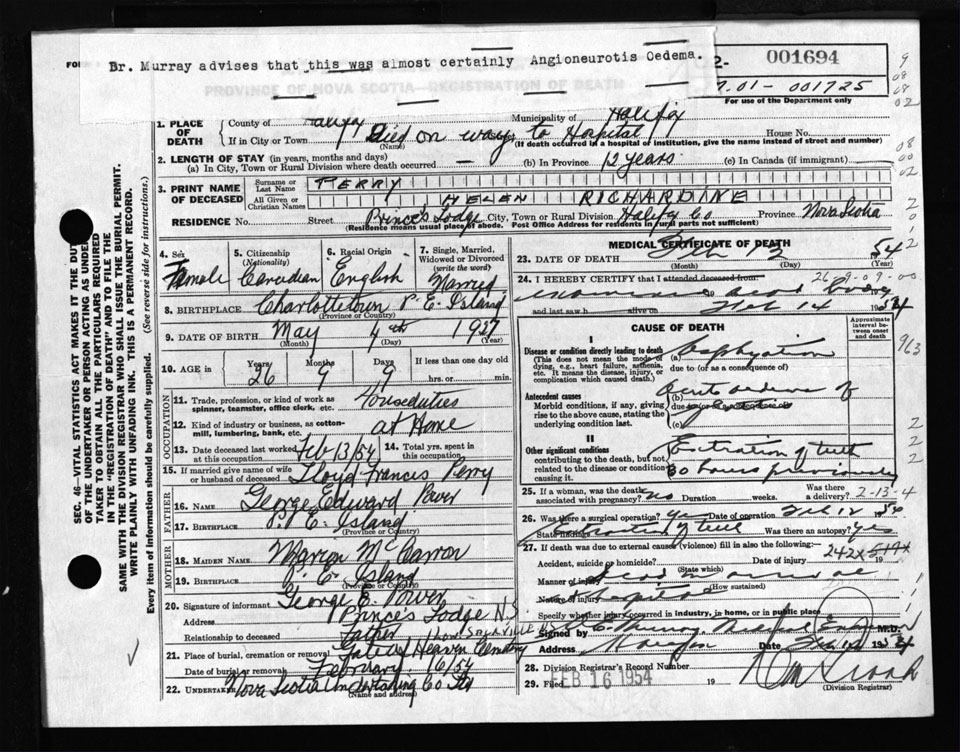 Dr. Murray advises that this was almost certainly Angioneurotis Oedema.
001694
7.01- 001725
For use of the Department only
PROVINCE OF NOVA SCOTIA—REGISTRATION OF DEATH
SEC. 46—VITAL STATISTICS ACT MAKES IT THE DUTY
OF THE UNDERTAKER OR PERSON ACTING AS UNDER-
TAKER TO OBTAIN ALL THE PARTICULARS REQUIRED
IN THE "REGISTRATION OF DEATH" AND TO FILE THE
SAME WITH THE DIVISION REGISTRAR WHO SHALL ISSUE THE BURIAL PERMIT.
WRITE PLAINLY WITH UNFADING INK. THIS IS A PERMANENT RECORD.
Every item of information should be carefully supplied. (See reverse side for instructions.)
1. PLACE OF DEATH
County of Halifax Municipality of Halifax
If in City or Town Died on way to Hospital House No.
(Name) (If death occurred in a hospital or institution, give the name instead of street and number)
2. LENGTH OF STAY (in years, months and days)
(a) In City, Town or Rural Division where death occurred — (b) In Province 12 years (c) In Canada (if immigrant)
3. PRINT NAME OF DECEASED
Surname or Last Name PERRY
All Given or Christian Names HELEN RICHARDINE
RESIDENCE No. Street Prince's Lodge City, Town or Rural Division Halifax Co Province Nova Scotia
(Residence means usual place of abode. Post Office Address for residents in rural parts not sufficient)
4. Sex Female
5. Citizenship (Nationality) Canadian
6. Racial Origin English
7. Single, Married, Widowed or Divorced (write the word) Married
8. BIRTHPLACE Charlottetown P. E. Island
(Province or Country)
9. DATE OF BIRTH May 4th 1927
(Month) (Day) (Year)
10. AGE in Years 26 Months 9 Days 9 If less than one day old
hrs. or min.
OCCUPATION
11. Trade, profession, or kind of work as spinner, teamster, office clerk, etc. Houseduties
12. Kind of industry or business, as cotton-mill, lumbering, bank, etc. at Home
13. Date deceased last worked at this occupation Feb/13/54 14. Total yrs. spent in this occupation.
15. If married give name of wife or husband of deceased Lloyd Francis Perry
FATHER
16. NAME George Edward Power
17. BIRTHPLACE P. E. Island
(Province or Country)
MOTHER
18. MAIDEN NAME Marion McCarron
19. BIRTHPLACE P. E. Island
(Province or Country)
20. Signature of informant George E. Power
Address Prince's Lodge N.S.
Relationship to deceased Father
21. Place of burial, cremation or removal Gate of Heaven Cemetery
Date of burial, removal February 16/54
22. UNDERTAKER Nova Scotia Undertaking Co Ltd
MEDICAL CERTIFICATE OF DEATH
23. DATE OF DEATH Feb 13 54
(Month) (Day) (Year)
26-9-09-00
24. I HEREBY CERTIFY that I attended deceased from
19
and last saw h alive on Feb 14 1954
CAUSE OF DEATH
Approximate interval between onset and death
I
Disease or condition directly leading to death (a) Asphyxiation
(This does not mean the mode of dying, e.g., heart failure, asthenia, etc. It means the disease, injury, or complication which caused death.)
due to (or as a consequence of)
Antecedent causes (b) Acute oedema of
Morbid conditions, if any, giving rise to the above cause, stating the underlying condition last.
due to
(c)
II
Other significant conditions Extraction of teeth
contributing to the death, but not related to the disease or condition causing it.
30 hours previously
25. If a woman, was the death associated with pregnancy? no Duration weeks. Was there a delivery? 2-13-4
26. Was there a surgical operation? Yes Date of operation Feb 12 1954
State findings Extraction of teeth Was there an autopsy? Yes
27. If death was due to external causes (violence) fill in also the following:— 242X
Accident, suicide or homicide? Date of injury 19
(State which)
Manner of injury Dead on arrival
(How sustained)
Nature of injury Hospital
Specify whether injury occurred in industry, in home, or in public place
Signed by Murray Medical Examiner M.D.
Address Date Feb 14 1954
28. Division Registrar's Record Number
29. Filed FEB 16 1954 19
(Division Registrar)
963